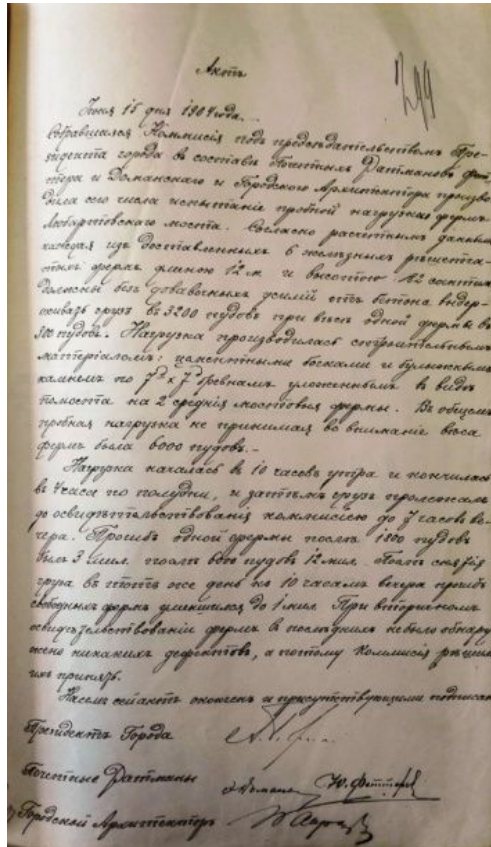 Актъ
299
Іюня 15 дня 1907 года.
Собравшаяся Коммисія подъ предсѣдательствомъ Пре-
зидента города въ составѣ Почетныхъ Ратмановъ
тера и Доманскаго и Городского Архитектора произво-
дила сего числа испытаніе пробной нагрузкой фермъ
Любартовскаго моста. Согласно расчетнымъ даннымъ
каждая изъ доставленныхъ 6 желѣзныхъ рѣшетча-
тыхъ фермъ длиною 12 м и высотою 82 сантим
должны безъ добавочныхъ усилій отъ бетона выдер-
живать грузъ въ 3200 пудовъ при вѣсѣ одной фермы въ
300 пудовъ. Нагрузка производилась строительнымъ
матеріаломъ: цементными бочками и булыжнымъ
камнемъ по 7" х 7" бревнамъ уложеннымъ въ видѣ
помоста на 2 среднія мостовыя фермы. Въ общемъ
пробная нагрузка не принимая во вниманіе вѣса
фермъ была 6000 пудовъ. –
Нагрузка началась въ 10 часовъ утра и кончилась
въ 4 часа по полудни, и затѣмъ грузъ пролежалъ
до освидѣтельствованія коммисіею до 7 часовъ ве-
чера. Прогибъ одной фермы послѣ 1800 пудовъ
былъ 3 мил. послѣ 6000 пудовъ 12 мил. Послѣ снятія
груза въ тотъ же день къ 10 часамъ вечера прогибъ
свободныхъ фермъ уменьшился до 1 мил. При вторичномъ
освидѣтельствованіи фермъ въ послѣднихъ не было обнару
жено никакихъ дефектовъ, а потому Коммисія рѣшила
ихъ принять.
На семъ сей актъ оконченъ и присутствующими подписанъ
Президентъ Города
Почетные Ратманы
Городской Архитекторъ